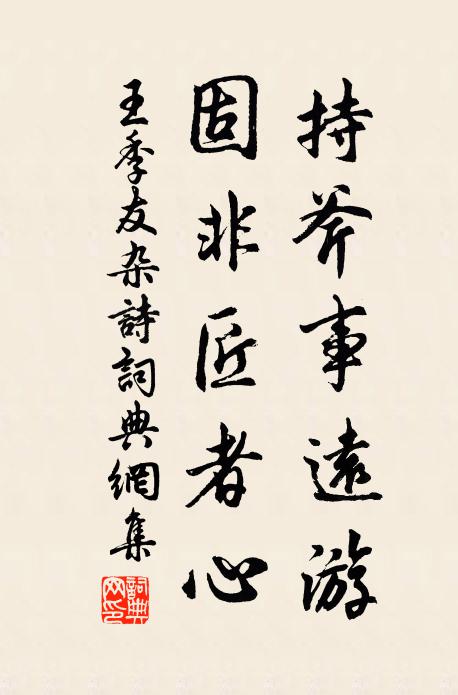 持斧事遠游
固非匠者心
王季友杂詩詞典網集
詞典網印